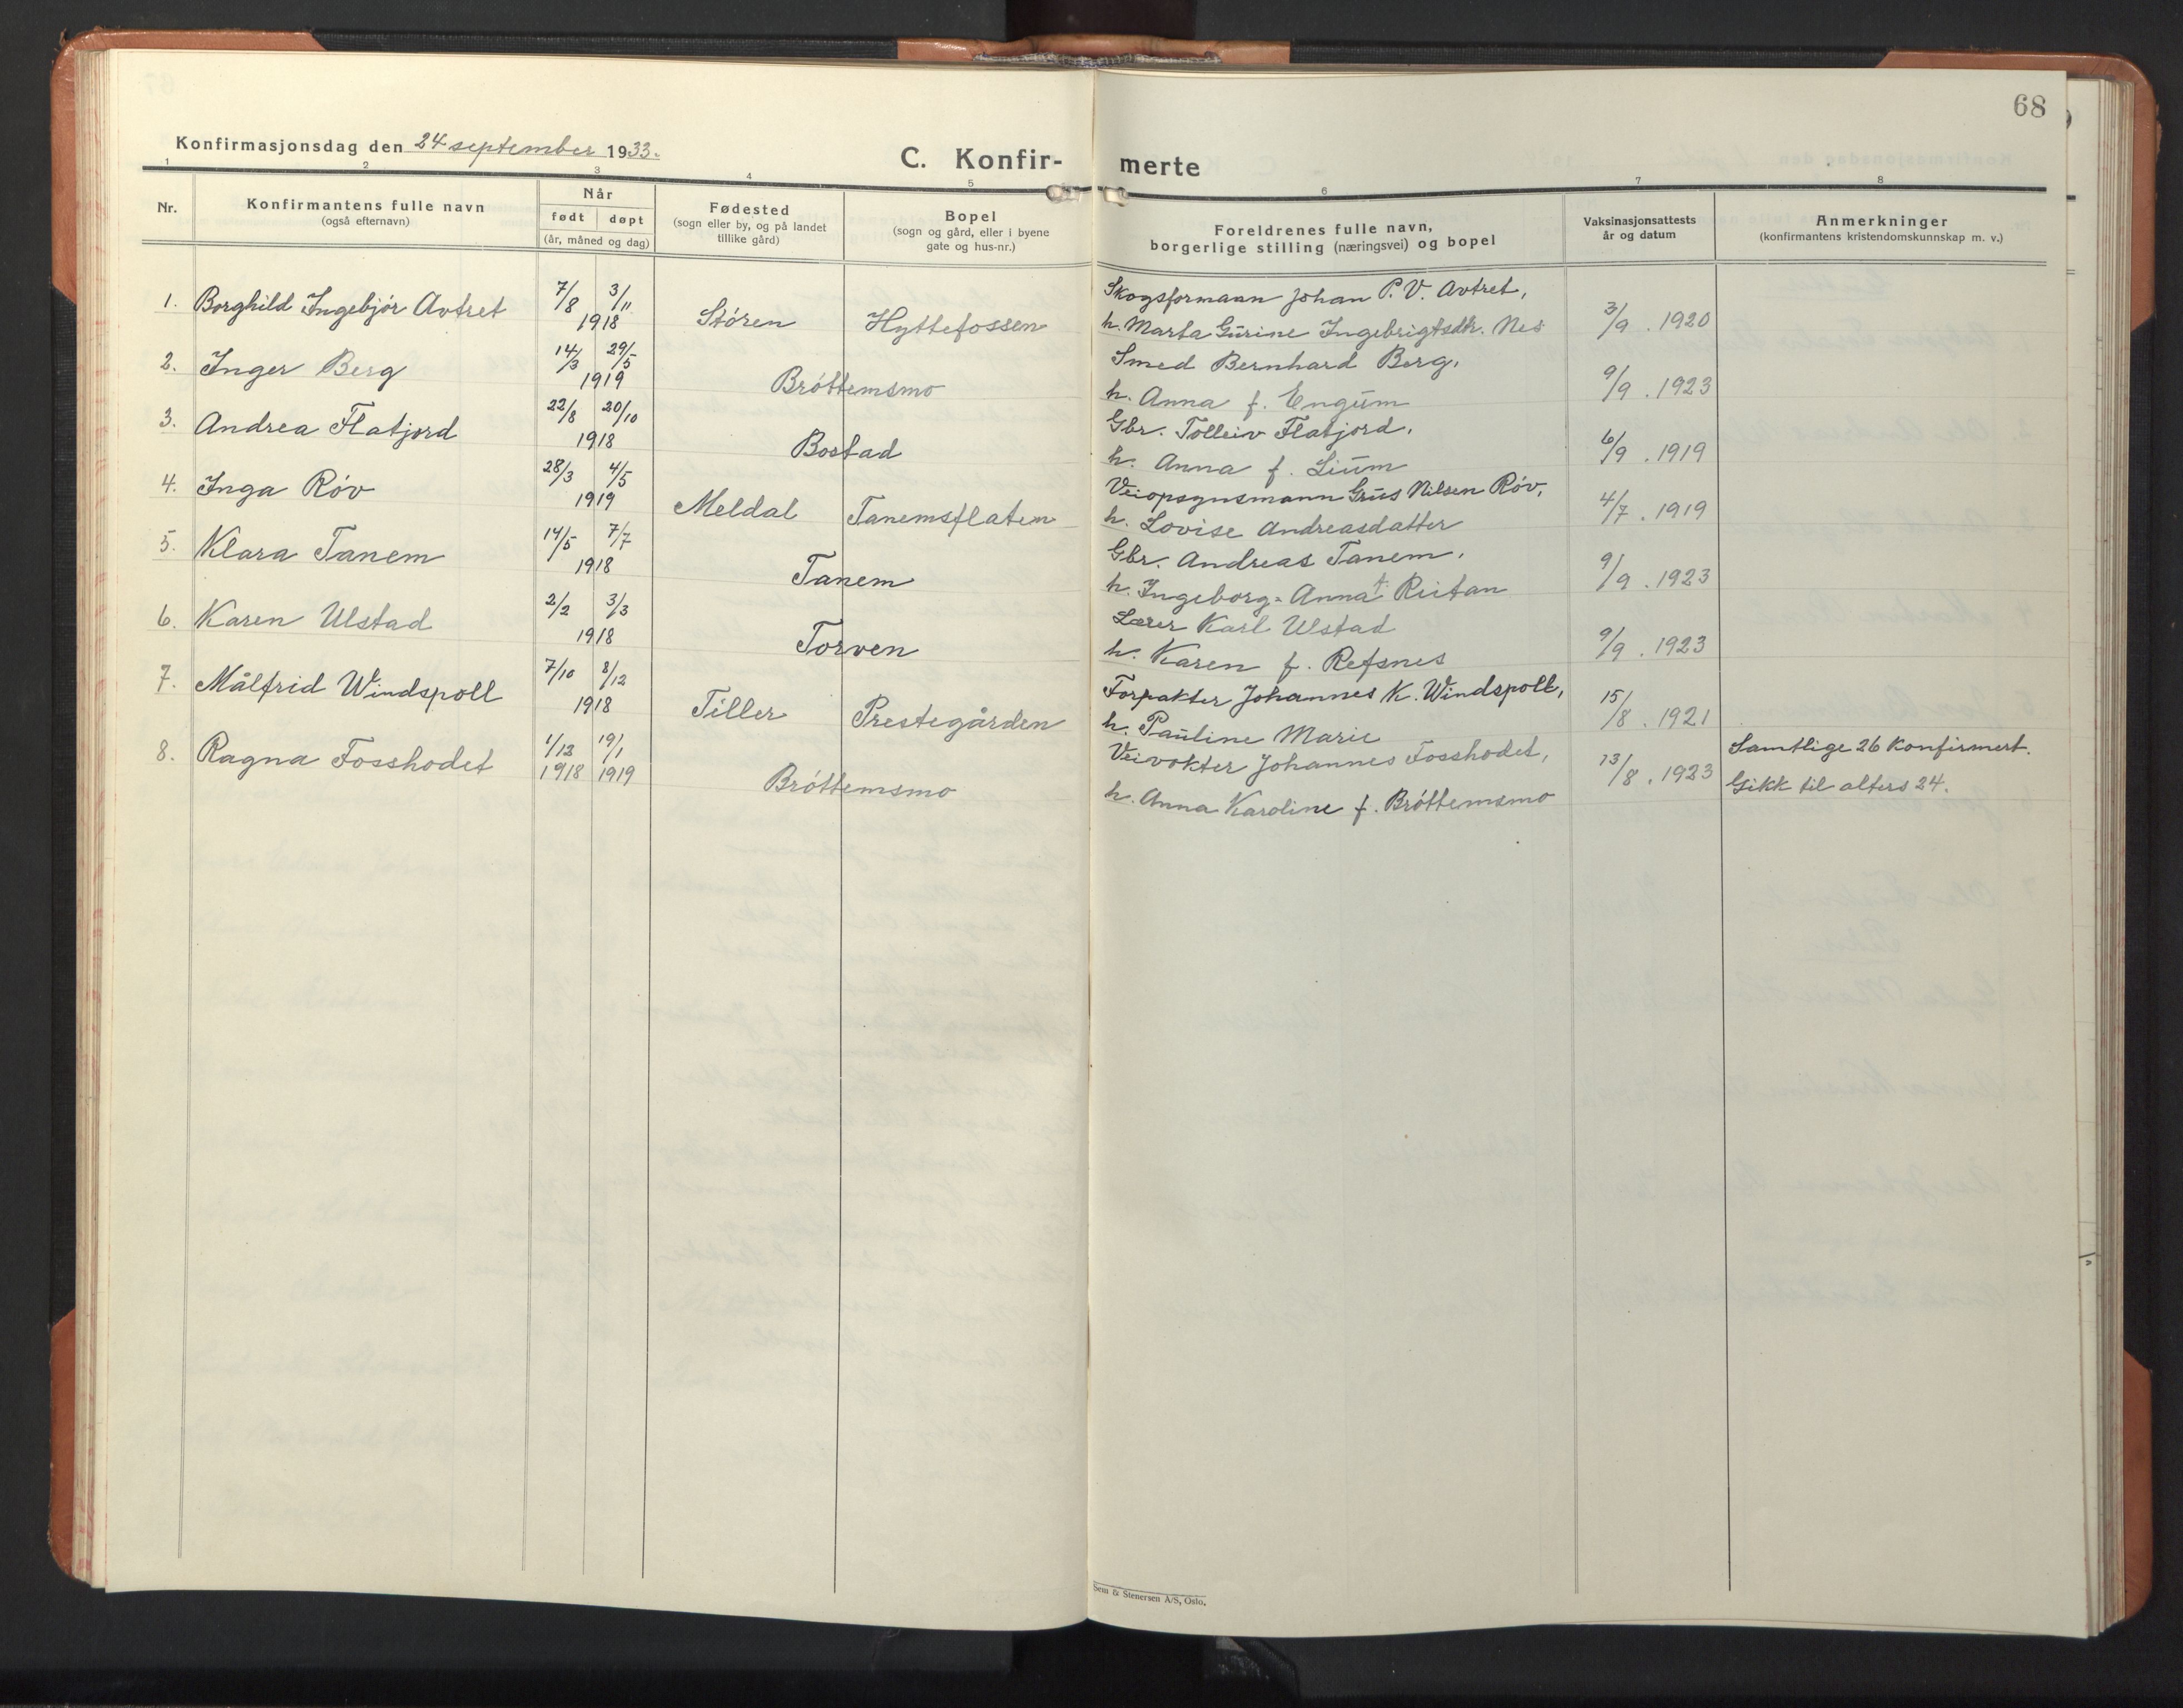 68
Konfirmasjonsdag den 24 september 1933.
C. Konfir-merte
1 2 3 4 5 6 7 8
Nr.
Konfirmantens fulle navn
(også efternavn)
Når
født døpt
(år, måned og dag)
Fødested
(sogn eller by, og på landet
tillike gård)
Bopel
(sogn og gård, eller i byene
gate og hus-nr.)
Foreldrenes fulle navn,
borgerlige stilling (næringsvei) og bopel
Vaksinasjonsattests
år og datum
Anmerkninger
(konfirmantens kristendomskunnskap m. v.)
1. Borghild Ingebjör Avtret 7/8 3/11 Skogsformann Johan P. V. Avtret,
1918 Stören Hyttefossen h. Marta Gurine Ingebrigtsdtr. Nes 3/9. 1920
2. Inger Berg 14/3 29/5 Smed Bernhard Berg,
1919 Bröttemsmo h. Anna f. Engum 9/9. 1923
3. Andrea Flatjord 22/8 20/10 Gbr. Tolleiv Flatjord,
1918 Bostad h. Anna f. Lium 6/9. 1919
4. Inga Röv 28/3 4/5 Veiopsynsmann Grus Nilsen Röv,
1919 Meldal Tanemsflaten h. Lovise Andreasdatter 4/7. 1919
5. Klara Tanem 14/5 7/7 Gbr. Andreas Tanem,
1918 Tanem h. Ingeborg-Anna f. Reitan 9/9. 1923
6. Karen Ulstad 2/2 3/3 Lærer Karl Ulstad
1918 Torven h. Karen f. Refsnes 9/9. 1923
7. Målfrid Windspoll 7/10 8/12 Forpakter Johannes K. Windspoll,
1918 Tiller Prestegården h. Pauline Marie 15/8. 1921
8. Ragna Fosshodet 1/12 19/1 Veivokter Johannes Fosshodet, Samtlige 26 konfirmert.
1918 1919 Bröttemsmo h. Anna Karoline f. Bröttemsmo 13/8. 1923 Gikk til alters 24.
Sem & Stenersen A/S, Oslo.